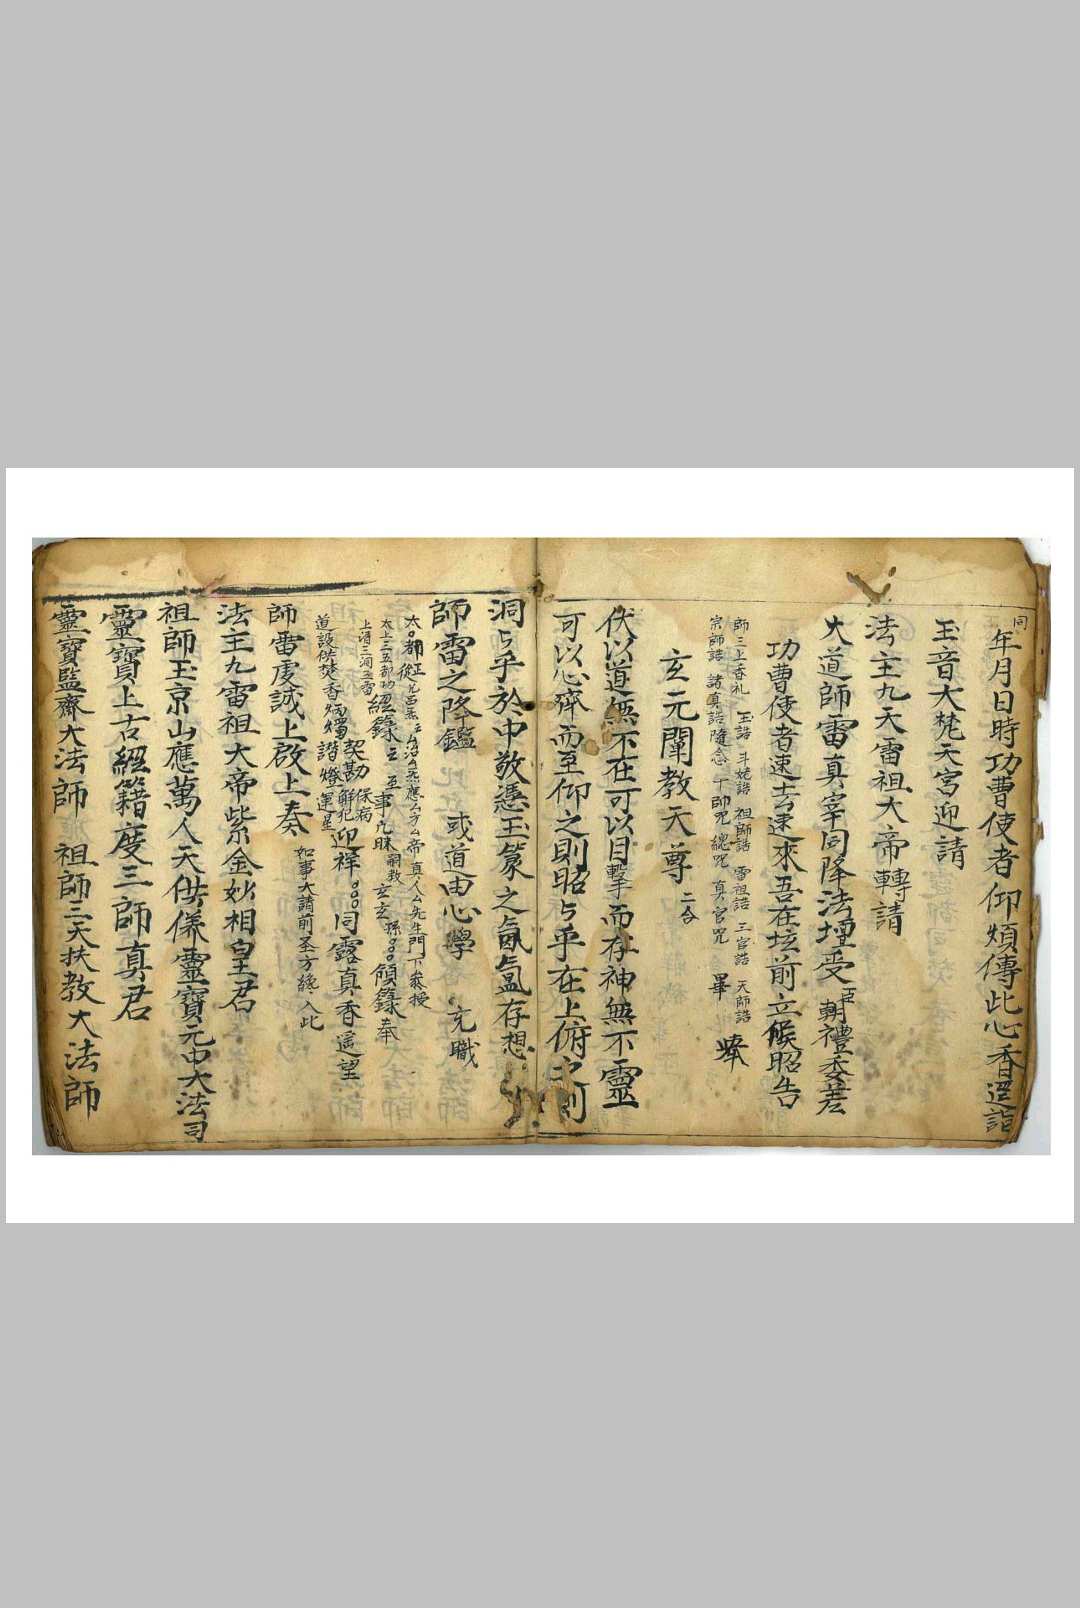 同
年月日時功曹使者仰煩傳此心香逕詣
玉音大梵天宮迎請
法主九天雷祖大帝轉請
大道師雷真宰同降法壇受臣朝禮委差
功曹使者速去速來吾在坛前立候昭告
師三上香礼 玉誥 斗姥誥 祖師誥 雷祖誥 三官誥 天師誥
宗師誥 諸真誥隨念 十帥咒 總咒 真官咒 畢
玄元闡教天尊 二合
伏以道無不在可以目擊而存神無不靈
可以心齊而至仰之則昭昭乎在上俯之則
洞洞乎於中敬憑玉篆之氤氲存想
師雷之降鑑 或道由心學 充職
太上三五都功經籙
上清三洞五雷經籙
道設供焚香炳燭 契勘 保病 解犯 迎祥 同露真香遥望
如事大請前圣方緣 入此
師雷虔誠上啟上奏
法主九雷祖大帝紫金妙相皇君
祖師玉京山應萬人天供儀靈寶元中大法司
靈寶上古經籍度三師真君
靈寶監齋大法師 祖師三天扶教大法師